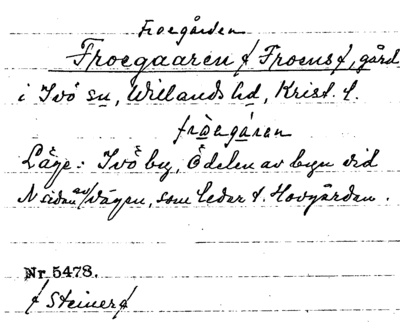 Froegården
Froegaaren ƒ Froensƒ, gård
i Ivö sn, Willands hd, Krist. l.
fròegáren
Läge: Ivö by, Ö delen av byn vid
N sidan av vägen, som leder t. Hovgården.
Nr 5478.
ƒ Steinerƒ